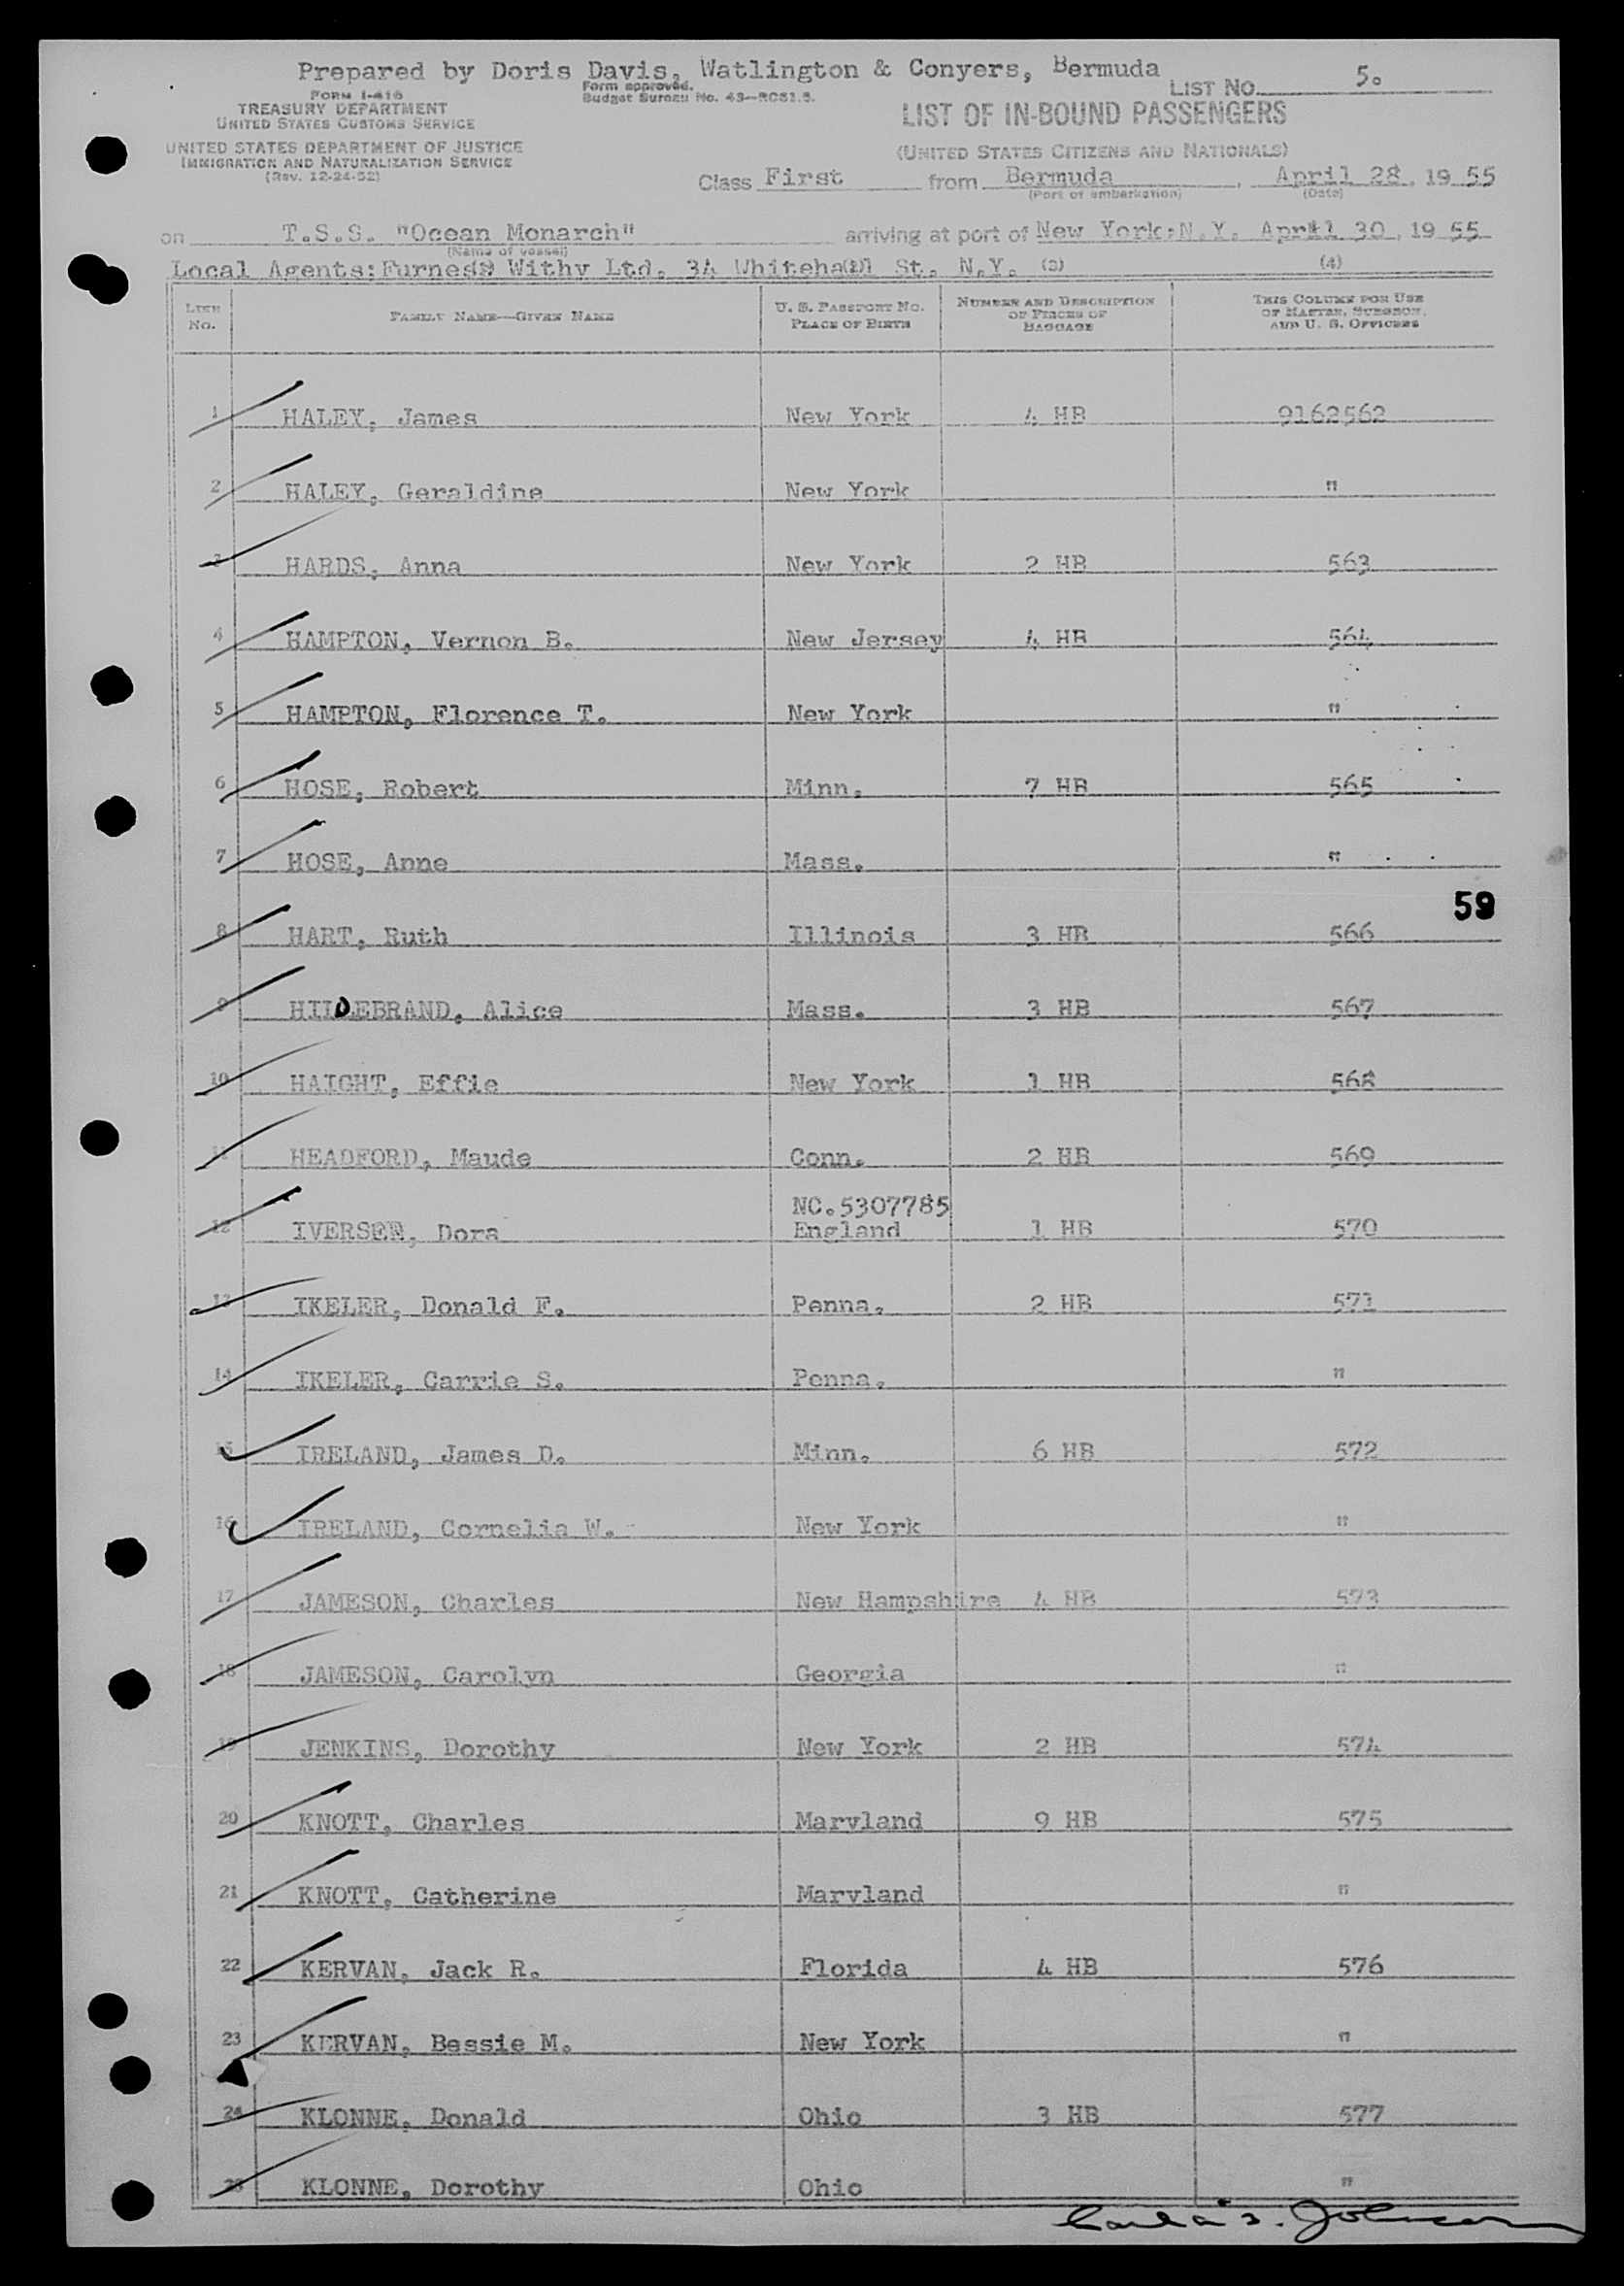 Prepared by Doris Davis, Watlington & Conyers, Bermuda
Form approved.
Budget Bureau No. 43-R081.5.
LIST No. 5.
FORM I-416
TREASURY DEPARTMENT
UNITED STATES CUSTOMS SERVICE
LIST OF IN-BOUND PASSENGERS
UNITED STATES DEPARTMENT OF JUSTICE
IMMIGRATION AND NATURALIZATION SERVICE
(Rev. 12-24-52)
(UNITED STATES CITIZENS AND NATIONALS)
Class First from Bermuda, April 28, 19 55
(Port of embarkation) (Date)
on T.S.S. "Ocean Monarch" arriving at port of New York, N.Y. April 30, 19 55
(Name of vessel)
Local Agents: Furness Withy Ltd. 34 Whitehall St. N.Y. (3) (4)
LINE No. FAMILY NAME—GIVEN NAME U. S. PASSPORT NO. PLACE OF BIRTH NUMBER AND DESCRIPTION OF PIECES OF BAGGAGE THIS COLUMN FOR USE OF MASTER, SURGEON, AND U. S. OFFICERS
1 HALEY, James New York 4 HB 9162562
2 HALEY, Geraldine New York "
3 HARDS, Anna New York 2 HB 563
4 HAMPTON, Vernon B. New Jersey 4 HB 564
5 HAMPTON, Florence T. New York "
6 HOSE, Robert Minn. 7 HB 565
7 HOSE, Anne Mass. "
59
8 HART, Ruth Illinois 3 HB 566
9 HILDEBRAND, Alice Mass. 3 HB 567
10 HAIGHT, Effie New York 1 HB 568
11 HEADFORD, Maude Conn. 2 HB 569
NC.5307785
12 IVERSEN, Dora England 1 HB 570
13 IKELER, Donald F. Penna. 2 HB 571
14 IKELER, Carrie S. Penna. "
15 IRELAND, James D. Minn. 6 HB 572
16 IRELAND, Cornelia W. New York "
17 JAMESON, Charles New Hampshire 4 HB 573
18 JAMESON, Carolyn Georgia "
19 JENKINS, Dorothy New York 2 HB 574
20 KNOTT, Charles Maryland 9 HB 575
21 KNOTT, Catherine Maryland "
22 KERVAN, Jack R. Florida 4 HB 576
23 KERVAN, Bessie M. New York "
24 KLONNE, Donald Ohio 3 HB 577
25 KLONNE, Dorothy Ohio "
Johnson